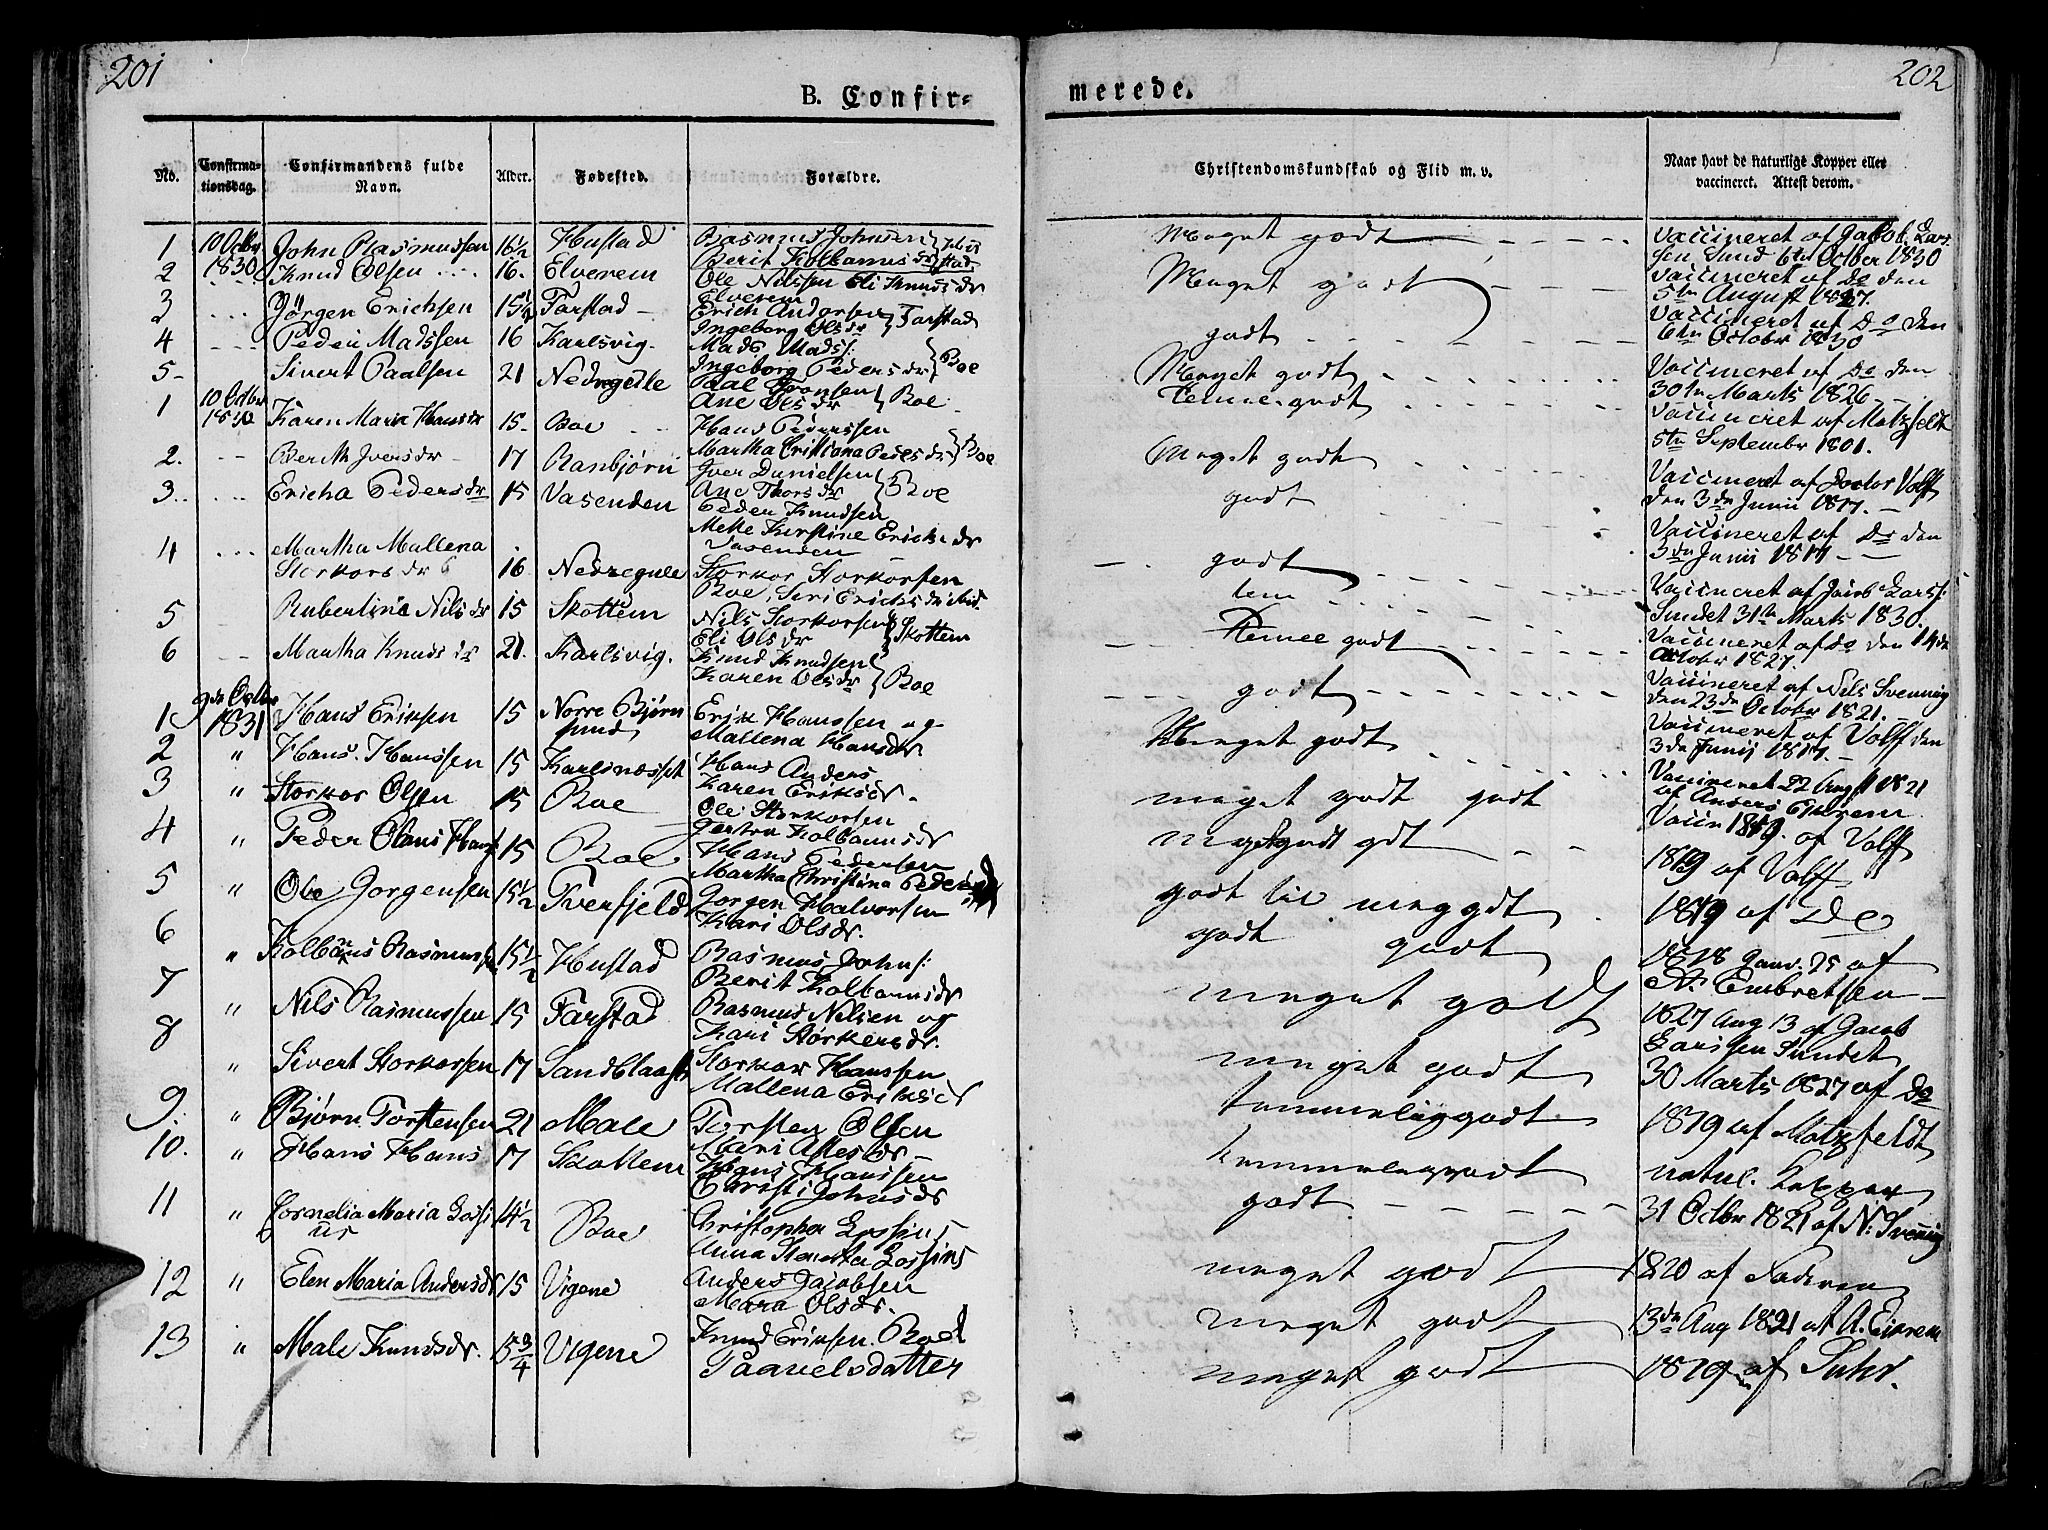 201
202
B. Confir-
merede.
No.
Confirma-
tionsdag.
Confirmandens fulde
Navn.
Alder.
Fødested.
Forældre.
Christendomskundskab og Flid m. v.
Naar havt de naturlige Kopper eller
vaccineret. Attest derom.
1 10 Octbr 1830 John Rasmussen 16½ Hustad Rasmus Johnsen Berit Kolbanus dr Hustad Meget godt vaccineret af Jacob Larssen Sund 6te October 1830
2 Knud Olsen 16. Elverem Ole Nilssen Eli Knuds dr Elverem Meget godt vaccineret af Do den 5te August 1827.
3 Jörgen Erichsen 15½ Farstad Erich Andersen Ingeborg Ols dr Farstad godt vaccineret af Do den 6te October 1830
4 Peder Madssen 16 Karlsvig. Mads Mads: Ingeborg Peders dr Boe Meget godt Vaccineret af Do den 30te Marts 1826
5 Sivert Paalsen 21 Nedregule Paal Ane Ols dr Boe Temel. godt vaccineret af Motzfeldt 5te September 1801.
1 10 Octbr 1830 Karen Maria Hans dr 15. Boe Hans Pederssen Martha Cristiana Peders dr Boe Meget godt Vaccineret af Doctor Volff den 3de Junii 1817.
2. Berith Ivers dr 17 Ranbjörn Iver Danielsen Ane Thors dr Boe godt Vaccineret af Do den 3de Junii 1817
3. Ericha Peders dr 15 Vasenden Peder Knudsen Mette Kirstine Erichs dr Vasenden godt Vaccineret af Jacob Lars: Sundet 31te Marts 1830.
4 Martha Mallena Storkors dr 16 Nedregule Storkor Storkorsen Boe, Seri Erichs dr ibid. tem Vaccineret af do den 14de October 1827.
5 Rubertina Nils dr 15 Skottem Nils Storkorsen Eli Ols dr Skottem Temee godt Vaccineret af Nils Svenning den 23de October 1821.
6 Martha Knuds dr 21. Karlsvig. Knud Knudsen Karen Ols dr Boe godt Vaccineret af Volff den 3de Junij 1817.
1 9de Octbr 1831 Hans Eriksen 15 Norre Bjørnsund Erik Hanssen og Mallena Hansdr Meget godt Vaccineret 22 Augst 1821 af Anders
2 " Hans. Hanssen 15 Karlsnæsset Hans Anders Karen Eriksdr. meget godt godt Vaccin 1819. af Volff
3 " Storkor Olsen 15 Boe Ole Storkorsen Gertru Kolbannsdr meget godt gdt 1819 af Volff
4 " Peder Olaus Hans 15 Boe Hans Pedersen Martha Christina Peders godt til meg gdt 1819 af Do
5 " Ole Jorgensen 15½ Tverfjeld Jorgen Halvorsen Kari Olsdr. godt godt 1818 Janv. 25 af N. Embretsen
6 " Kolbanus Rasmuss 15½ Hustad Rasmus Johns: Berit Kolbannsdr meget godt 1827 Aug 13 af Jacob Larssen Sundet
7 " Nils Rasmussen 15 Farstad Rasmus Nilsen og Kari Størkersdr. meget godt 30 Marts 1827 af Do
8 " Sivert Storkorsen 17 Sandblaast Storkor Hanssen Mallena Eriksdr temmelig godt 1819 af Motzfeldt
9. " Bjørn Torstensen 21 Male Torsten Olsen Meri Astesdr temmelig godt natul. Kopper
10. " Hans Hans 17 Skottem Hans Hanssen Christi Johnsdr godt 31 Octbr 1821 af N: Svening
11 " Cornelia Maria Lossius 14½ Boe Christopher Lossius Anna Lossius meget godt 1820 af Faderen
12 " Elen Maria Andersdr 15 Vigene Anders Jacobsen Mara Olsdr. meget godt 13de Aug 1821 af A. Eisrem
13 " Male Knudsdr. 15¾ Vigene Knud Eriksen. Roel Paavelsdatter meget godt 1819 af Suhr.